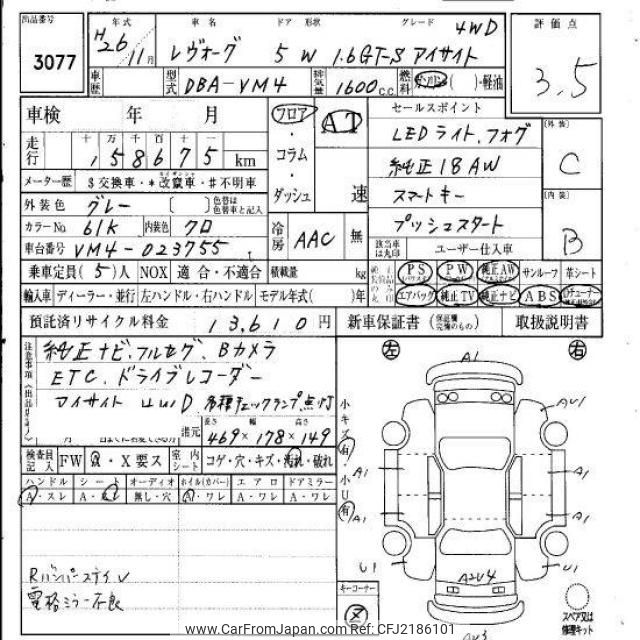 出品番号 年式 車名 ドア 形状 グレード 4WD 評価点
3077 H26 11月 レヴォーグ 5 W 1.6GT-S アイサイト 3.5
車歴 型式 DBA-VM4 排気量 1600 c.c. 燃料 ガソリン ( )・軽油
車検 年 月 フロア AT セールスポイント
走行 十 万 千 百 十 一
158675 km
・コラム・ダッシュ 速
LEDライト.フォグ 外装 C
純正18AW
メーター歴 $交換車・*改竄車・#不明車
スマートキー 内装 B
外装色 グレー 〔 〕 色替は色替車と記入
プッシュスタート
カラーNo. 61k 内装色 クロ 冷房 AAC 無
該当車は丸印 ユーザー仕入車
車台番号 VM4-023755
乗車定員 (5)人 NOX 適合・不適合 積載量 kg PS PW 純正AW サンルーフ 革シート
輸入車 ディーラー・並行 左ハンドル・右ハンドル モデル年式( )年 エアバッグ 純正TV 純正ナビ ABS
預託済リサイクル料金 13,610円 新車保証書 (保証書完備のもの) 取扱説明書
注意事項(出品店申告)
純正ナビ.フルセグ.Bカメラ
ETC.ドライブレコーダー
アイサイト 4WD 各種チェックランプ点灯
諸元 長さ 幅 高さ
469×178×149
検査員記入 FW A・X要ス 室内シート コゲ・穴・キズ・汚れ・破れ
ハンドル シート オーディオ ホイル(カバー) エアロ ドアミラー
A・スレ 無し・穴 A・ワレ A・ワレ A・ワレ
Rバンパーステイ V
電格ミラー不良
左 右
小キズ 有 ・ 小U 有
A1
AU1
A1 A1
A1 A1
U1 U1
A2U4
AU3
キーコーナー
スペア又は修理キット
www.CarFromJapan.com Ref:CFJ2186101